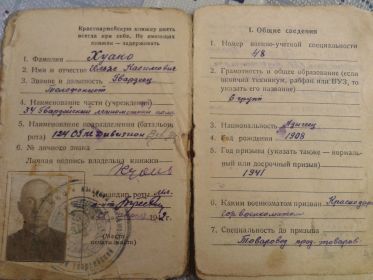 Красноармейскую книжку иметь
всегда при себе. Не имеющих
книжки — задерживать
1. Фамилия Хуако
2. Имя и отчество Касимович
3. Звание и должность Гвардеец
Телефонист
4. Наименование части (учреждения)
34 Гвардейский полк
5. Наименование подразделения (батальон,
рота) 124 дивизион
6. № личного знака
Личная подпись владельца книжки
Командир роты
(Место
печати части)
I. Общие сведения
1. Номер военно-учетной специальности
48
2. Грамотность и общее образование (если
окончил техникум, рабфак или ВУЗ, то
указать его название)
3. Национальность Адыгеец
4. Год рождения 1908
5. Год призыва (указать также — нормальный
или досрочный призыв)
1941
6. Каким военкоматом призван Краснодар
горвоенкоматом
7. Специальность до призыва
Товаровед прод. товаров